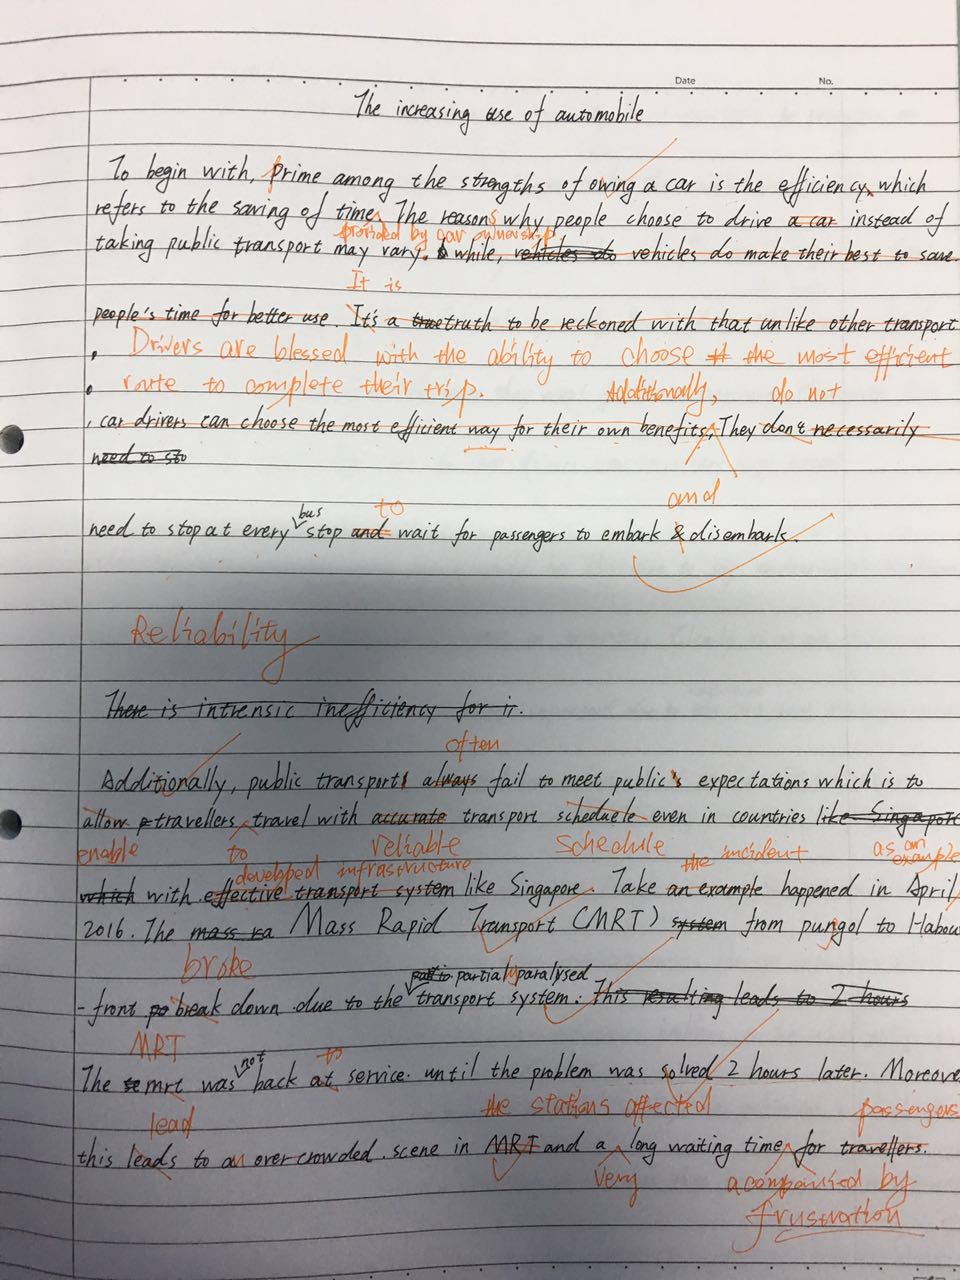 Date No.
The increasing use of automobile
To begin with, prime among the strengths of owing a car is the efficiency, which
refers to the saving of time. The reasons why people choose to drive a car instead of
provided by car ownership
taking public transport may vary. while, vehicles do vehicles do make their best to save
It is
people's time for better use. It's a true truth to be reckoned with that unlike other transport
Drivers are blessed with the ability to choose the most efficient
route to complete their trip. Additionally, do not
, car drivers can choose the most efficient way for their own benefits, They don't necessarily
need to sto
and
bus to
need to stop at every stop and wait for passengers to embark & disembark.
Reliability
There is intrensic inefficiency for it.
often
Additionally, public transport always fail to meet public's expectations which is to
allow travellers travel with accurate transport scheduele even in countries like Singapore
enable to reliable schedule the incident as an example
developed infrastructure
which with effective transport system like Singapore. Take an example happened in April
2016. The mass ra Mass Rapid Transport (MRT) system from pungol to Habou
broke
partially paralysed
-front break down due to the transport system. This resulting leads to 2 hours
MRT not to
The mrt was back at service until the problem was solved 2 hours later. Moreove
lead the stations affected passengers
this leads to an over crowded scene in MRT and a long waiting time for travellers.
very acompanied by
frustration